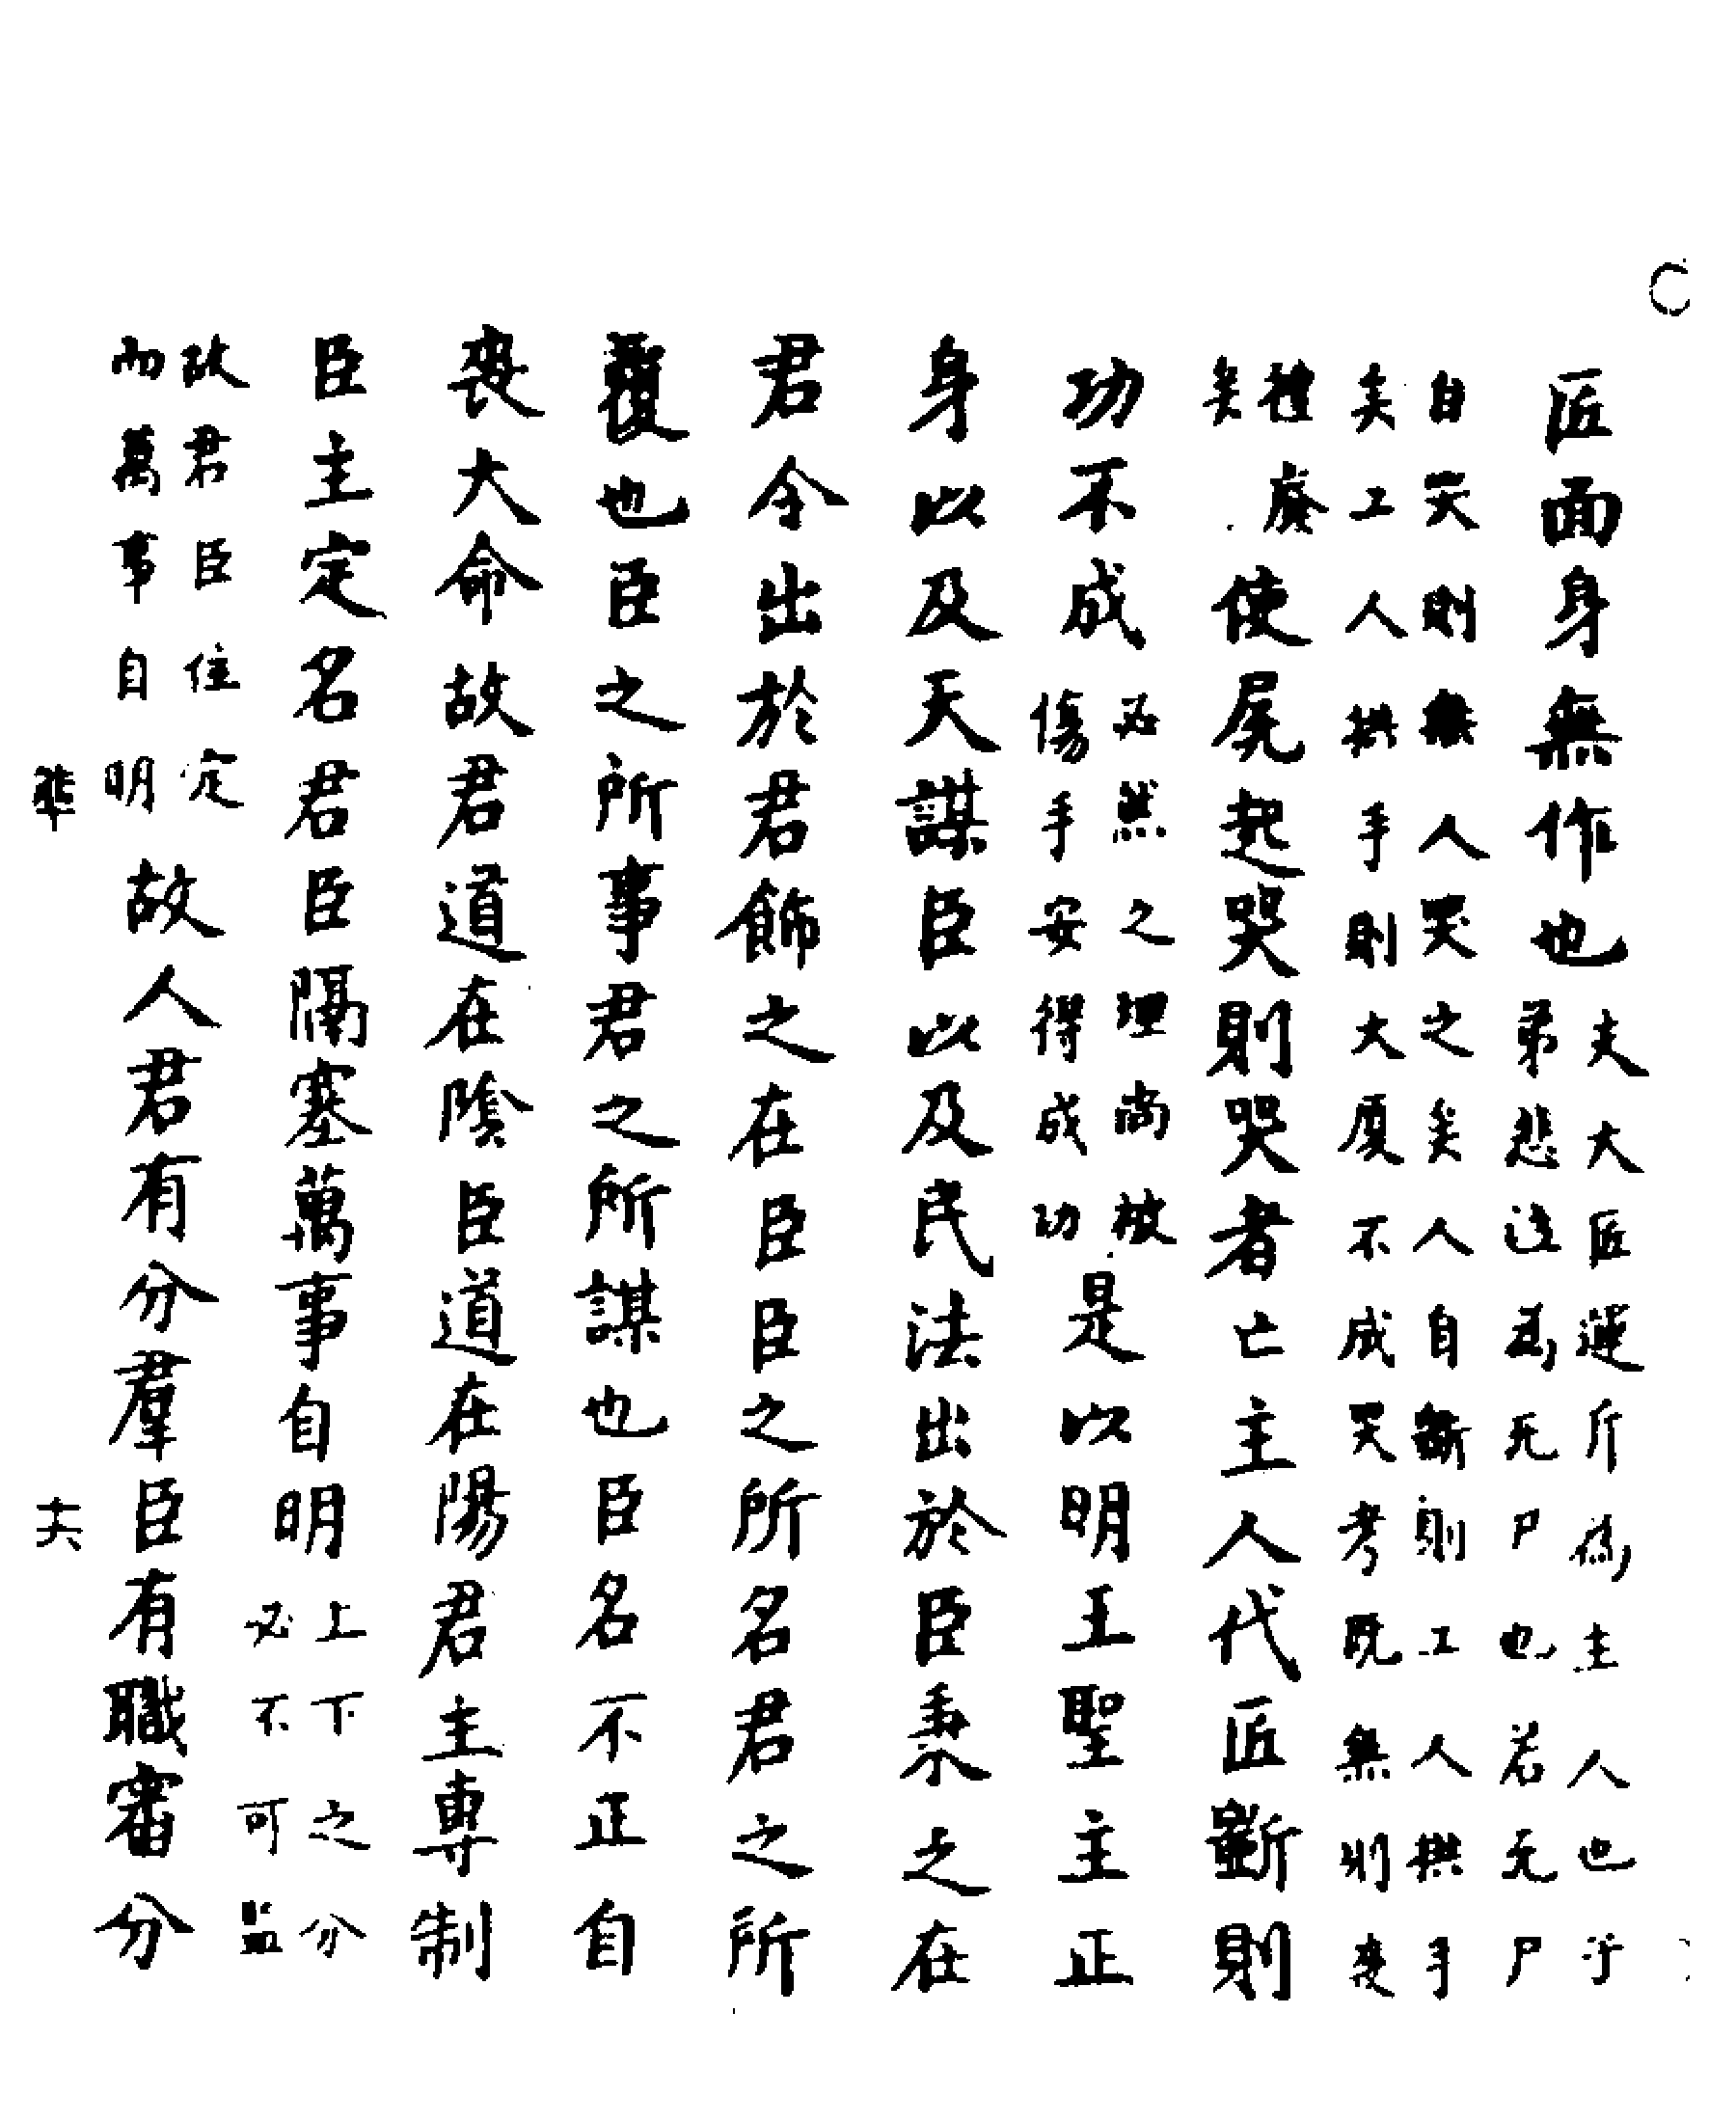 匠面身無作也夫大匠運斤為主人也于弟悲泣為死尸也若无尸
自哭則無人哭之矣人自斲則工人拱手矣工人拱手則大厦不成哭考既無則喪
禮廢矣使屍起哭則哭者亡主人代匠斲則
功不成必然之理尚被傷手安得成功是以明王聖主正
身以及天謀臣以及民法出於臣秉之在
君令出於君飾之在臣臣之所名君之所
覆也臣之所事君之所謀也臣名不正自
喪大命故君道在陰臣道在陽君主専制
臣主定名君臣隔塞萬事自明上下之分必不可監
故君臣位定而萬事自明故人君有分羣臣有職審分
十六